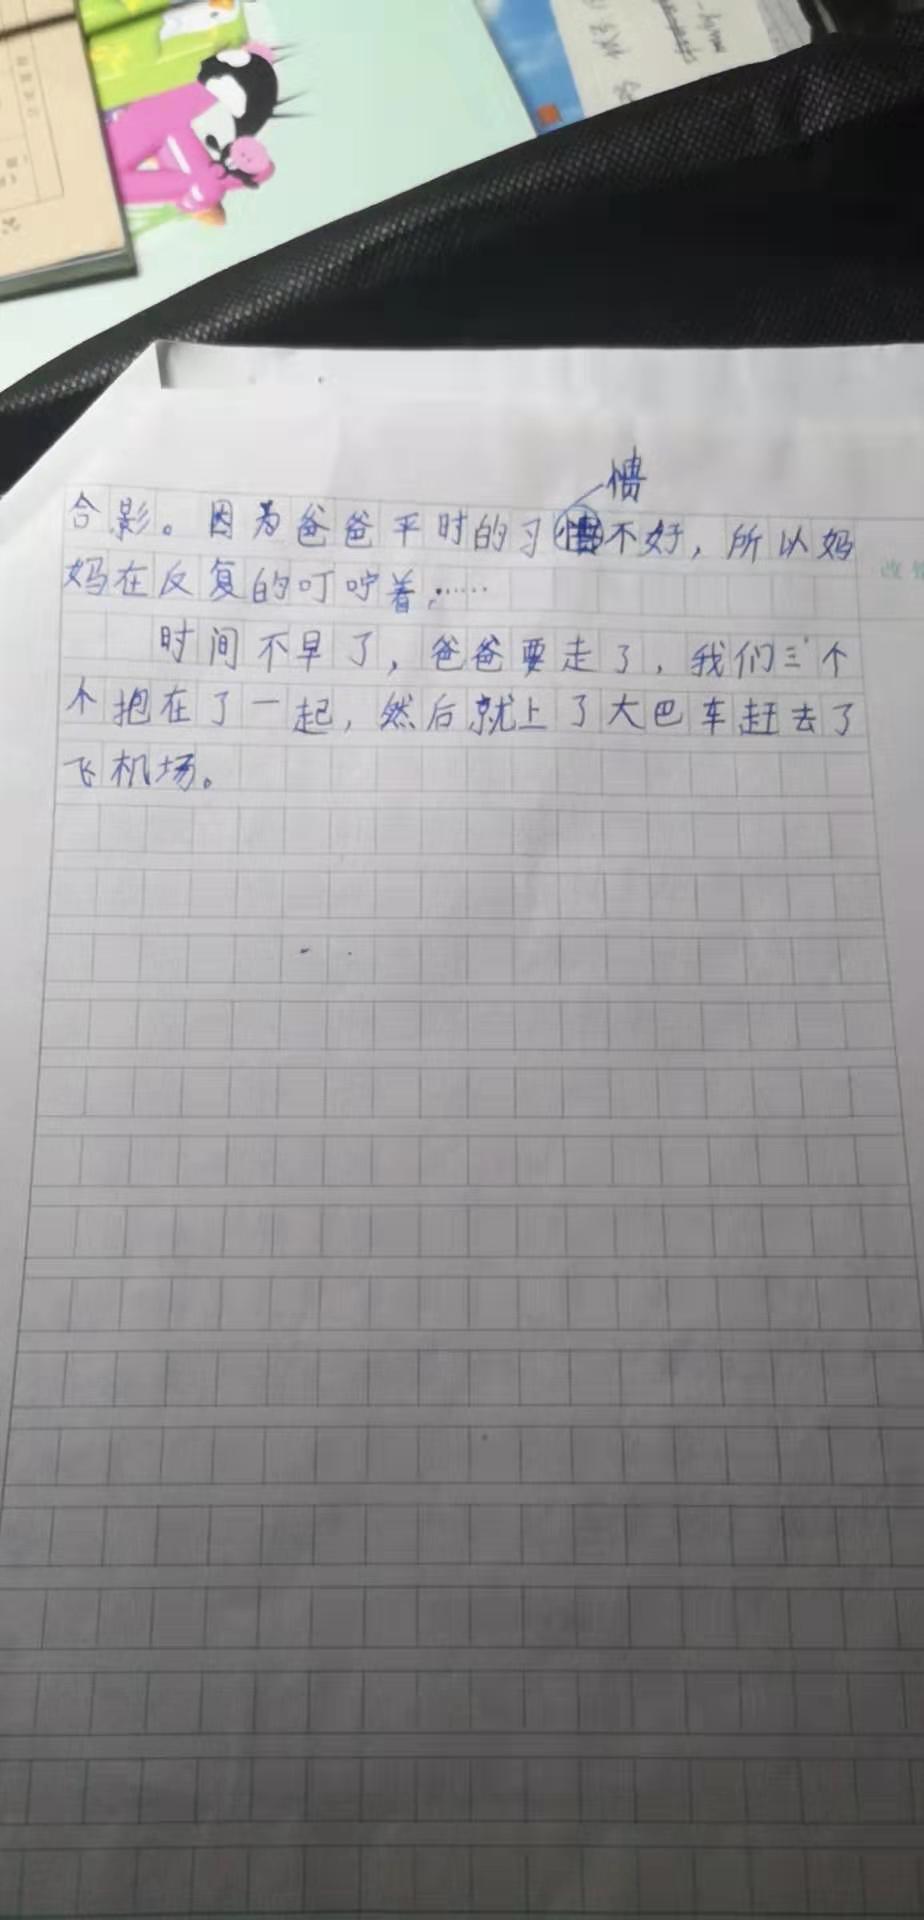 合影。因为爸爸平时的习惯不好，所以妈
妈在反复的叮咛着，……
时间不早了，爸爸要走了，我们三个
个抱在了一起，然后就上了大巴车赶去了
飞机场。